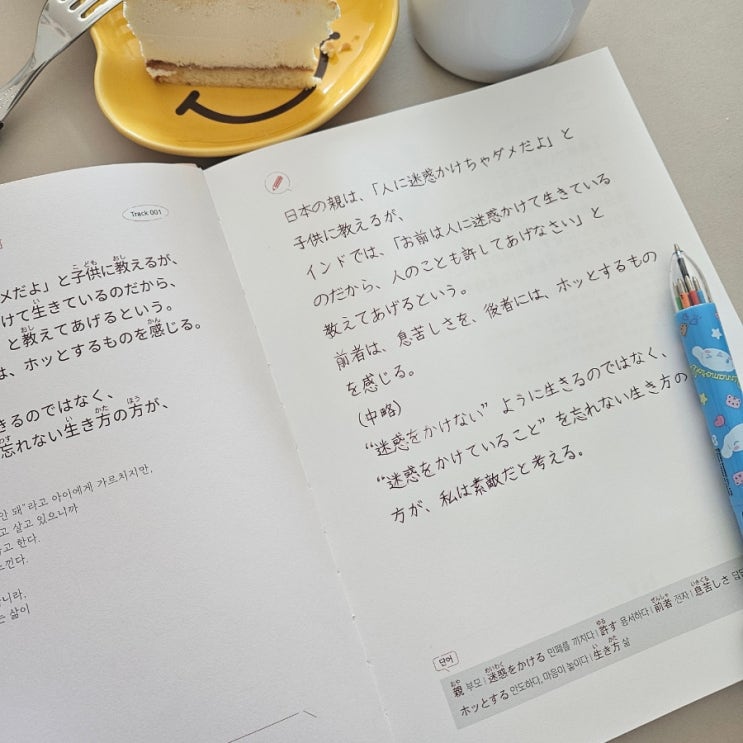 Track 001
メだよ」と子供に教えるが、
けて生きているのだから、
と教えてあげるという。
は、ホッとするものを感じる。
きるのではなく、
忘れない生き方の方が、
안 돼"라고 아이에게 가르치지만,
고 살고 있으니까
고 한다.
느낀다.
니라,
는 삶이
日本の親は、「人に迷惑かけちゃダメだよ」と
子供に教えるが、
インドでは、「お前は人に迷惑かけて生きている
のだから、人のことも許してあげなさい」と
教えてあげるという。
前者は、息苦しさを、後者には、ホッとするもの
を感じる。
(中略)
“迷惑をかけない”ように生きるのではなく、
“迷惑をかけていること”を忘れない生き方の
方が、私は素敵だと考える。
단어
親 부모 | 迷惑をかける 민폐를 끼치다 | 許す 용서하다 | 前者 전자 | 息苦しさ 답답
ホッとする 안도하다, 마음이 놓이다 | 生き方 삶